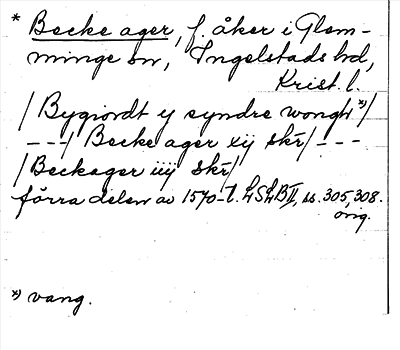 * Becke ager, f. åker i Glem-
minge sn, Ingelstads hd,
Krist. l.
/ Bygiordt y syndre wongh *)/
---/ Becke ager xij skr/ ---
/ Beckager iiij skr/
förra delen av 1570-t. LSLB II, ss. 305, 308.
orig.
*) vang.